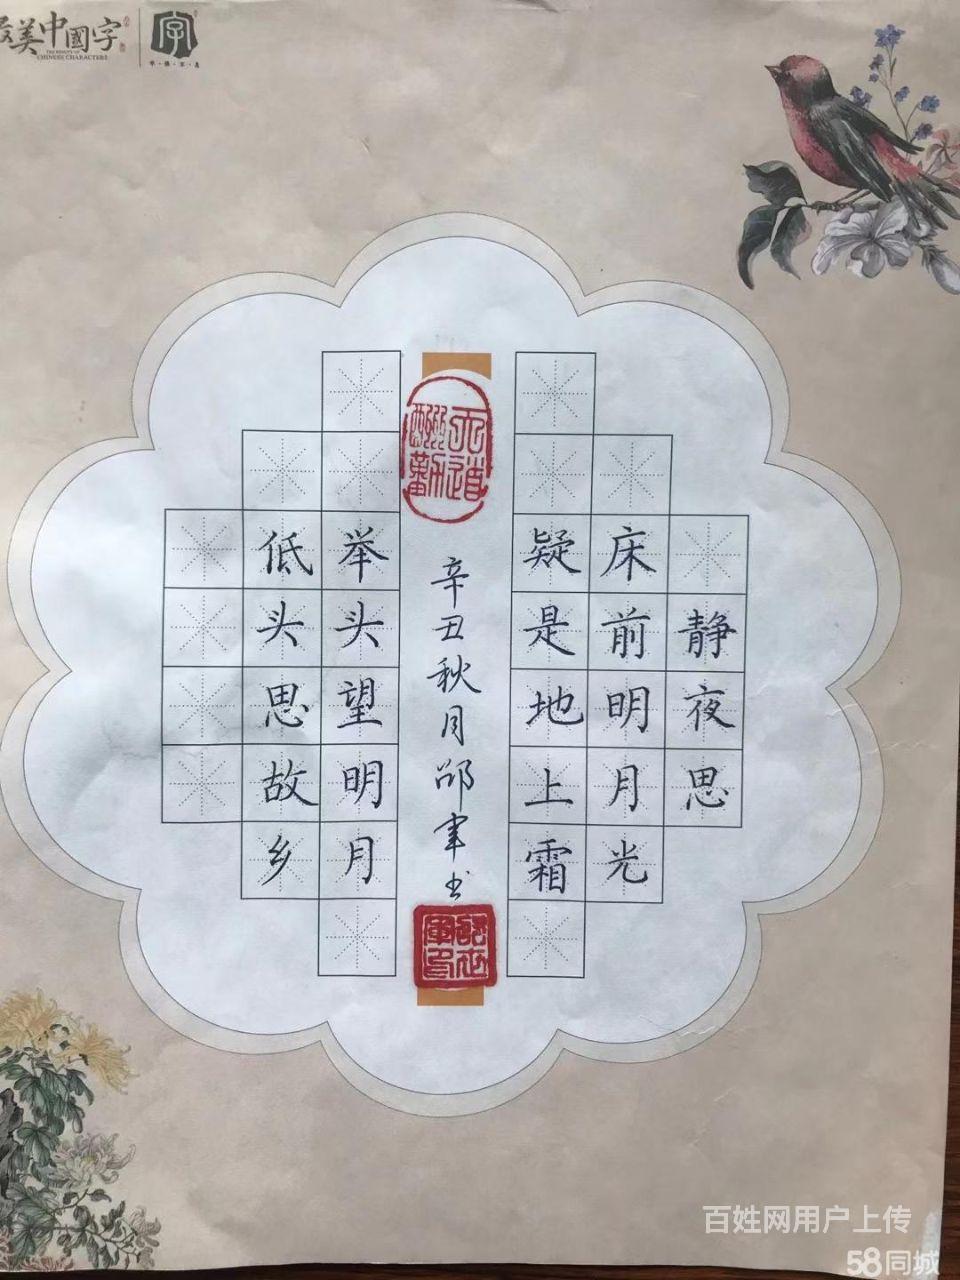 最美中國字
THE BEAUTY OF
CHINESE CHARACTERS
字
静夜思
床前明月光
疑是地上霜
天道酬勤
辛丑秋月邵军书
举头望明月
低头思故乡
百姓网用户上传
58同城